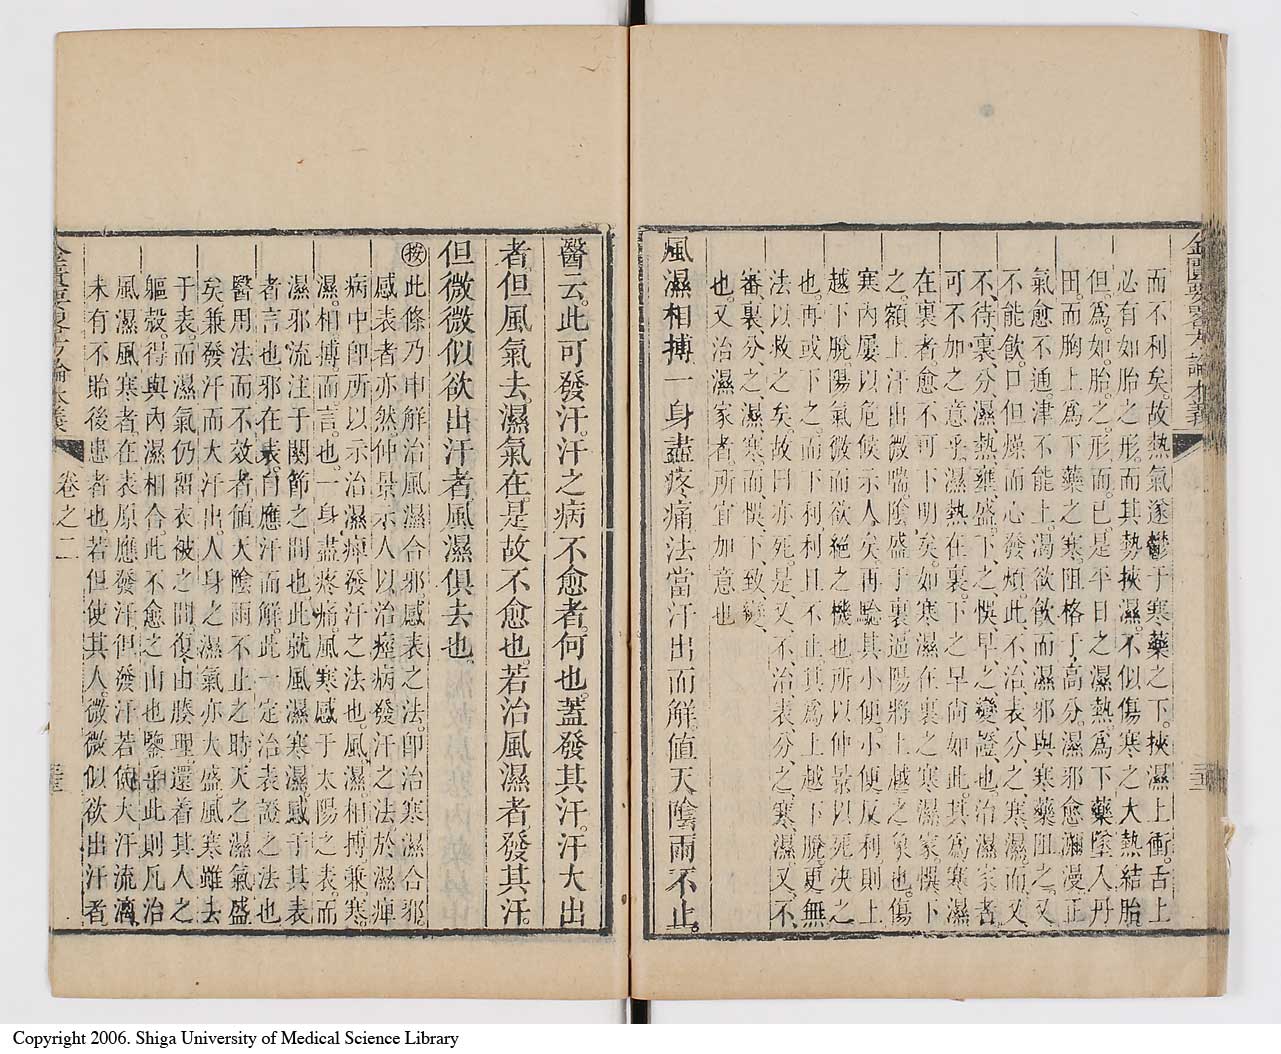 金匱要略方論本義
而不利矣。故熱氣遂鬱于寒藥之下。挾濕上衝。舌上
必有如胎之形。而其勢挾濕。不似傷寒之大熱結胎
但爲如胎之形而已。是平日之濕熱。爲下藥墜入丹
田。而胸上爲下藥之寒。阻格于高分。濕邪愈瀰漫正
氣愈不通。津不能上。渴欲飲而濕邪與寒藥阻之。又
不能飲。口但燥而心發煩。此不治表分之寒濕。而又
不待裏分濕熱壅盛下之悞早之變證也。治濕家者
可不加之意乎。濕熱在裏。下之早尚如此。其爲寒濕
在裏者愈不可下明矣。如寒濕在裏之寒濕家悞下
之。額上汗出微喘。陰盛于裏逼陽將上越之象也。傷
寒內屢以危候示人矣。再驗其小便。小便反利則上
越下脫陽氣微而欲絕之機也。所以仲景以死决之
也。再或下之。而下利利且不止。其爲上越下脫。更無
法以救之矣。故曰亦死。是又不治表分之寒濕。又不
審裏分之濕寒。而悞下致變
也。又治濕家者所宜加意也
風濕相摶一身盡疼痛法當汗出而解值天陰雨不止。
醫云。此可發汗。汗之病不愈者何也。蓋發其汗。汗大出
者但風氣去。濕氣在。是故不愈也。若治風濕者發其汗。
但微微似欲出汗者。風濕俱去也
按此條乃申解治風濕合邪感表之法。卽治寒濕合邪
感表者亦然。仲景示人以治痙病發汗之法於濕痺
病中卽所以示治濕痺發汗之法也。風濕相摶。兼寒
濕相摶而言也。一身盡疼痛。風寒感于太陽之表。而
濕邪流注于關節之間也。此就風濕寒濕感于其表
者言也。邪在表。自應汗而解。此一定治表證之法也
醫用法而不效者值天陰雨不止之時。天之濕氣盛
矣。兼發汗而大汗出。人身之濕氣亦大盛風寒雖去
于表。而濕氣仍留衣被之間。復由腠理。還着其人之
軀殼。得與內濕相合。此不愈之由也。鑒乎此則凡治
風濕風寒者在表原應發汗。但發汗若使大汗流漓
未有不貽後患者也。若但使其人。微微似欲出汗者
金匱要略方論本義
卷之二